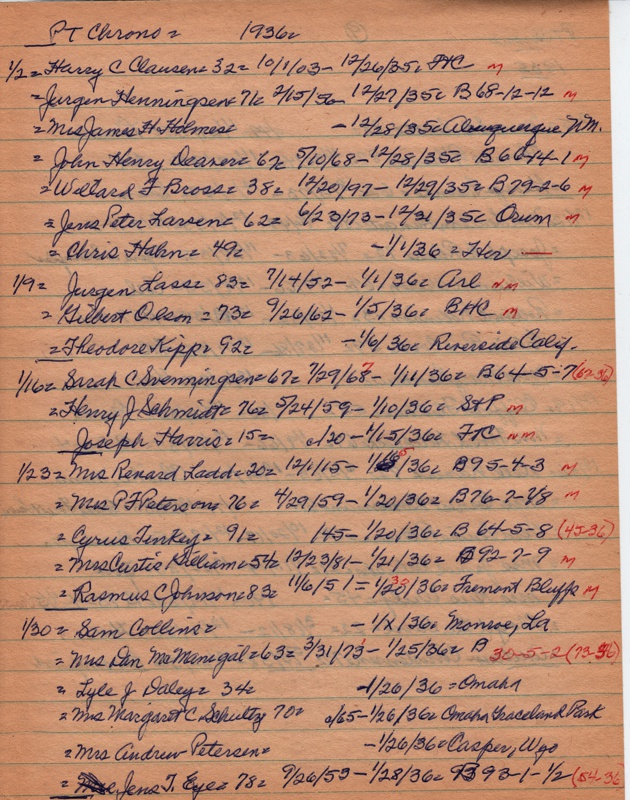 PT Chrono = 1936=
1/2 = Harry C Clausen = 32 = 10/1/03 - 12/26/35 = FHC M
= Jurgen Henningsen = 71 = 2/15/56 - 12/27/35 = B 68-12-12 M
= Mrs James H Holmes = - 12/28/35 = Albuquerque N.M.
= John Henry Deaver = 67 = 5/10/68 - 12/28/35 = B 66-14-1 M
= Willard F Bross = 38 = 12/20/97 - 12/29/35 = B 79-2-6 M
= Jens Peter Larsen = 62 = 6/23/73 - 12/31/35 = Orum M
= Chris Hahn = 49 = - 1/1/36 = Her —
1/9 = Jurgen Lass = 83 = 7/14/52 - 1/1/36 = Arl NM
= Gilbert Olson = 73 = 9/26/62 - 1/5/36 = BHC M
= Theodore Kipp = 92 = - 1/6/36 = Riverside Calif.
1/16 = Sarah C Svenningsen = 67 = 7/29/68 7 - 1/11/36 = B 64-5-7 (67-36)
= Henry J Schmidt = 76 = 5/24/59 - 1/10/36 = StP M
Joseph Harris = 15 = c/20 - 1/15/36 = FHC NM
1/23 = Mrs Renard Ladd = 20 = 12/1/15 - /36 = B 95-4-3 M
= Mrs P F Peterson = 76 = 4/29/59 - 1/20/36 = B 76-7-7/8 M
= Cyrus Tinkey = 91 = /45 - 1/20/36 = B 64-5-8 (45-36)
= Mrs Curtis William = 54 = 12/23/81 - 1/21/36 = B 92-7-9 M
= Rasmus C Johnson = 83 = 11/6/51 = 1/20/36 = Fremont Bluffs M
1/30 = Sam Collins = - 1/X/36 = Monroe, La
= Mrs Dan McManigal = 63 = 3/31/73 - 1/25/36 = B 30-5-2 (73-36)
= Lyle J Daley = 34 = - 1/26/36 = Omaha
= Mrs Margaret C Schultz 70 = c/65 - 1/26/36 = Omaha Graceland Park
= Mrs Andrew Petersen = - 1/26/36 = Casper, Wyo
= Jens T. Eye = 78 = 9/26/53 - 1/28/36 = B 93-1-1/2 (54-36)